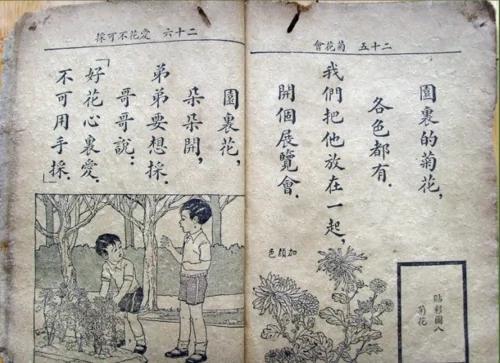 二十五 菊花會
園裏的菊花，
各色都有．
我們把他放在一起，
開個展覽會．
貼彩圖八
菊花
加顏色
二十六 愛花不可採
園裏花，
朵朵開，
弟弟要想採．
哥哥說：
「好花心裏愛．
不可用手採」